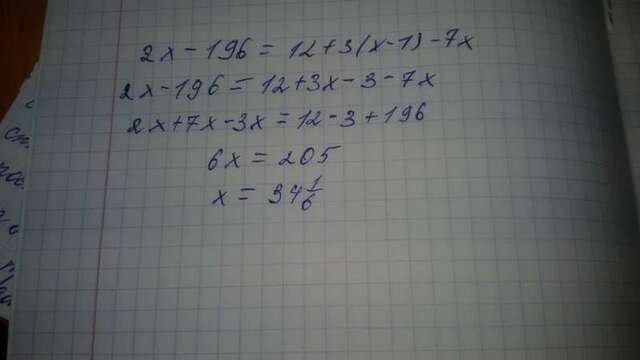 2x - 196 = 12 + 3(x - 1) - 7x
2x - 196 = 12 + 3x - 3 - 7x
2x + 7x - 3x = 12 - 3 + 196
6x = 205
x = 34 1/6